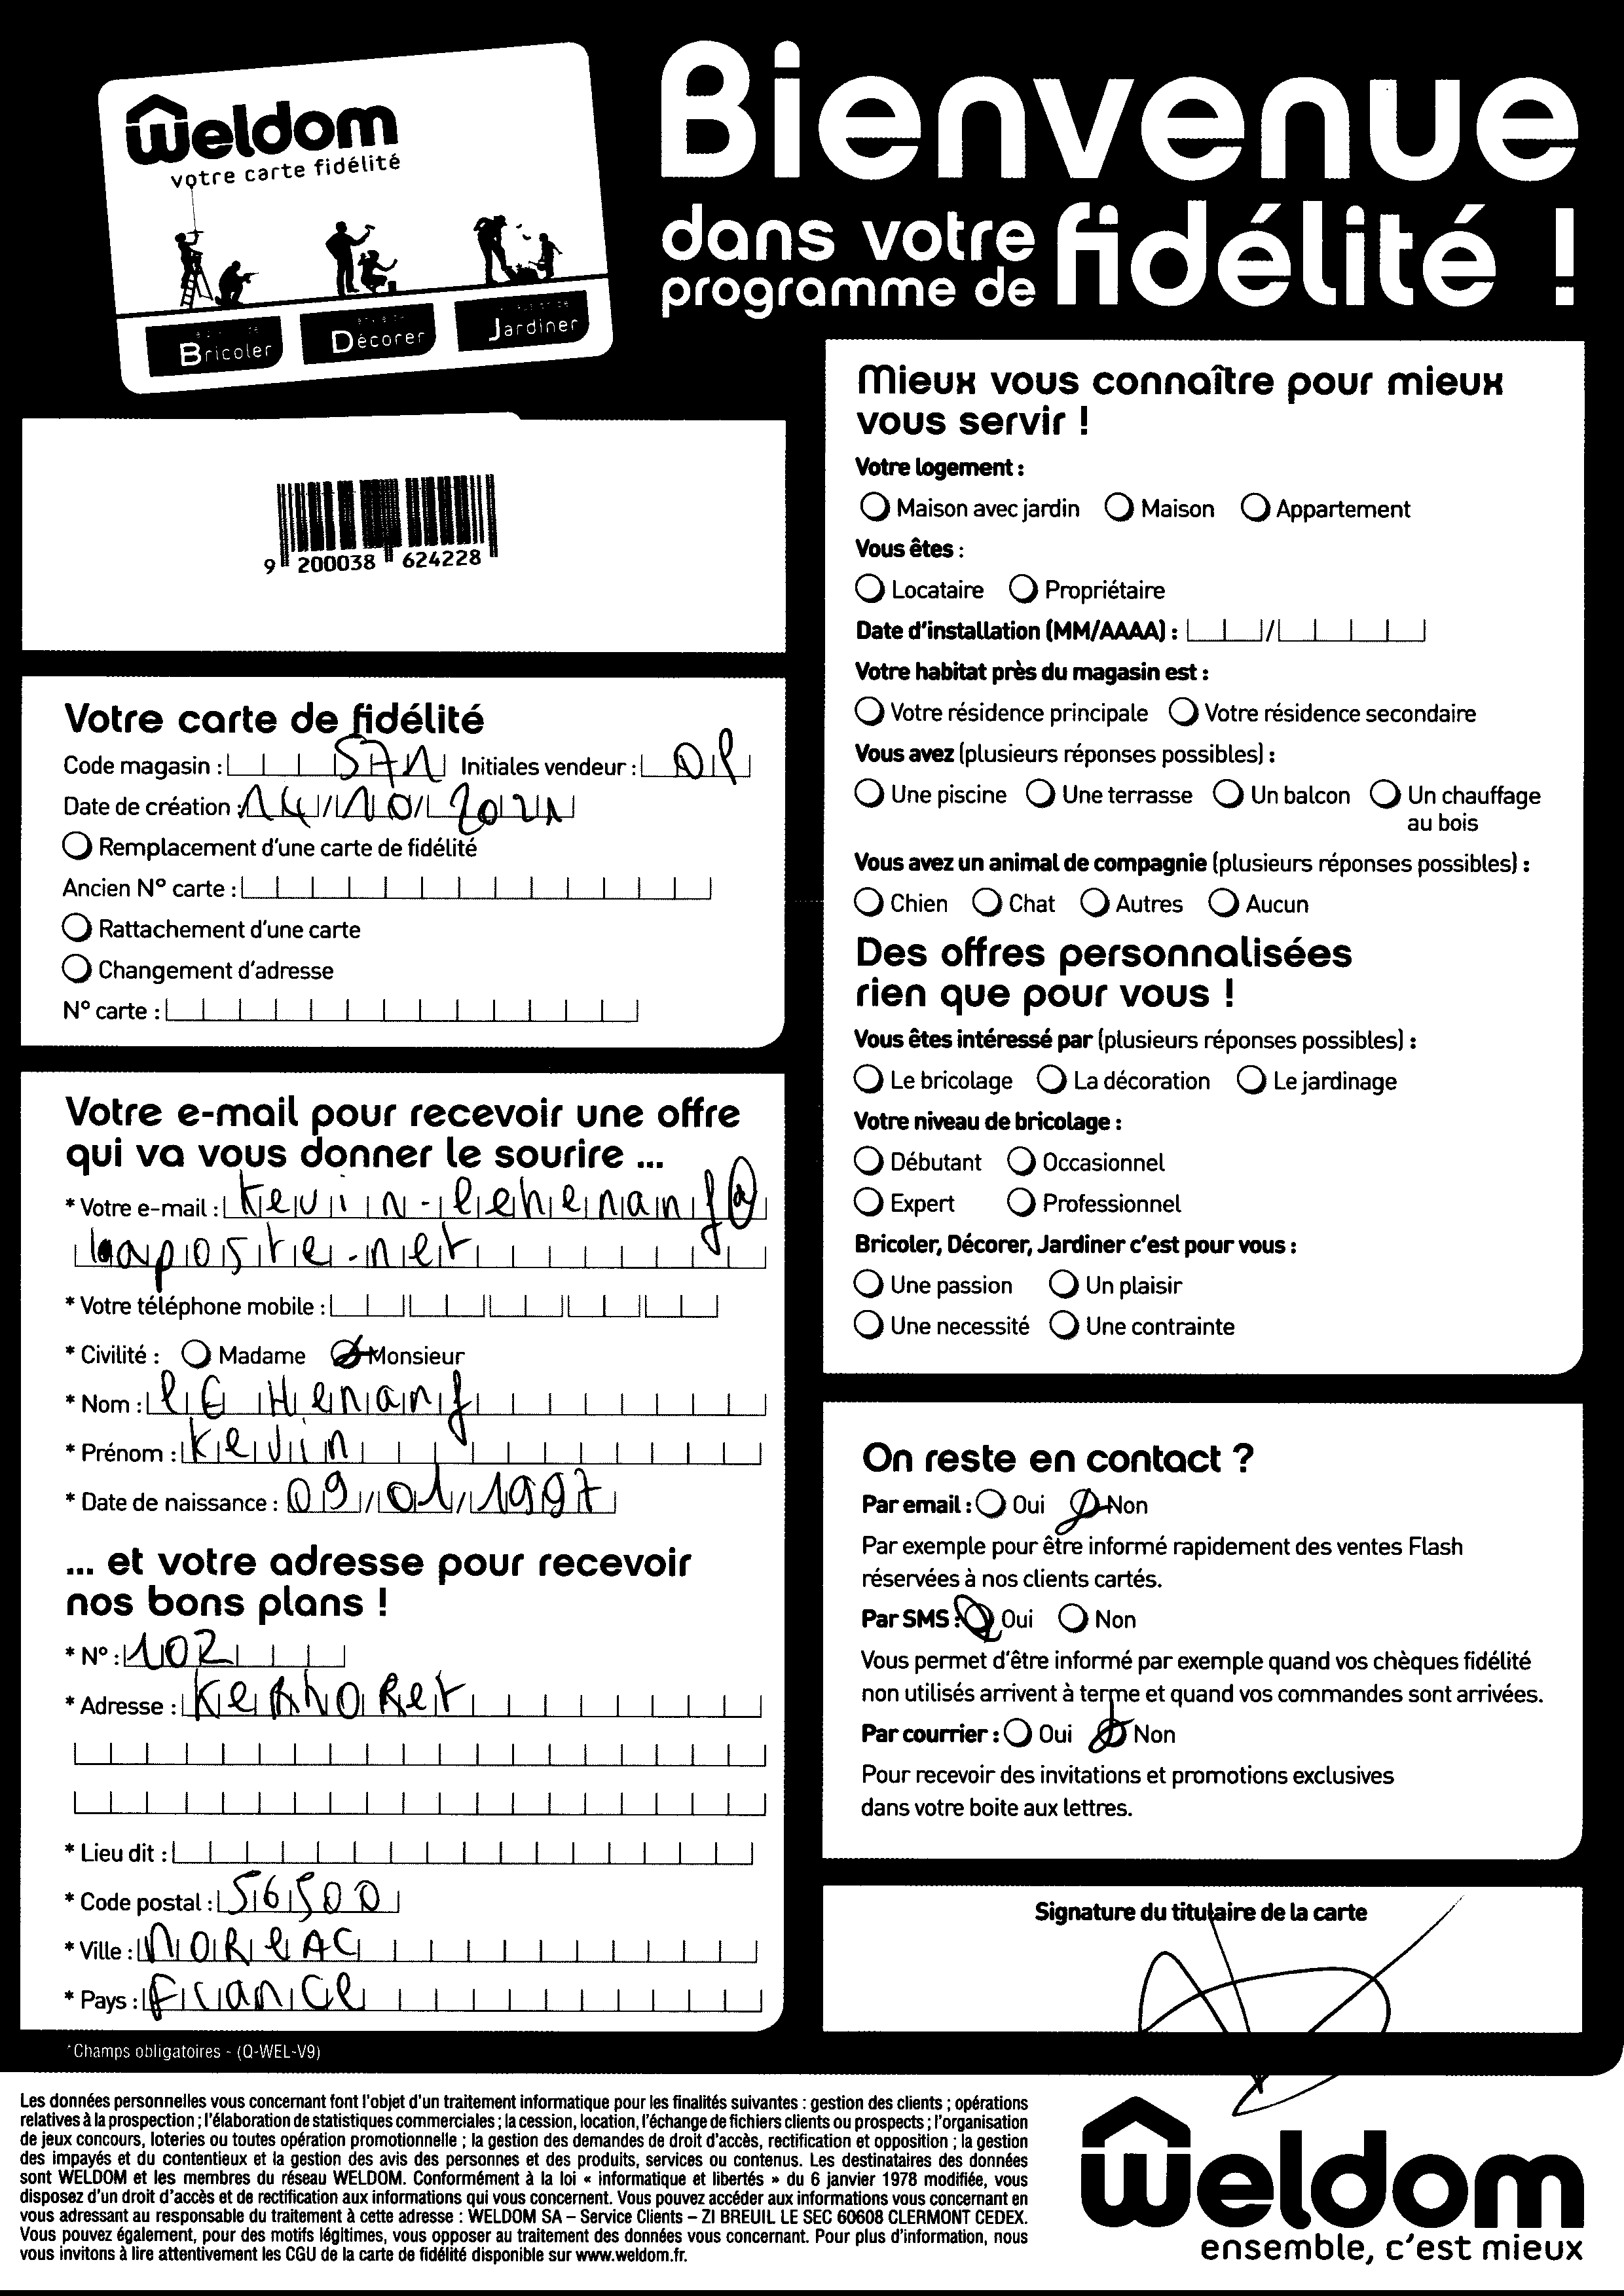 Weldom
votre carte fidélité
Bricoler
Décorer
Jardiner
Bienvenue
dans votre
programme de fidélité !
9 200038 624228
Votre carte de fidélité
Code magasin : 571 Initiales vendeur : OP
Date de création : 14/10/2021
Remplacement d'une carte de fidélité
Ancien N° carte :
Rattachement d'une carte
Changement d'adresse
N° carte :
Votre e-mail pour recevoir une offre
qui va vous donner le sourire ...
* Votre e-mail : kevin-lehenanf@
laposte.net
* Votre téléphone mobile :
* Civilité : Madame Monsieur
* Nom : le Henanf
* Prénom : Kevin
* Date de naissance : 09/01/1997
... et votre adresse pour recevoir
nos bons plans !
* N° : 102
* Adresse : KeRhoRet
* Lieu dit :
* Code postal : 56500
* Ville : MOReAC
* Pays : France
*Champs obligatoires - (Q-WEL-V9)
Mieux vous connaître pour mieux
vous servir !
Votre logement :
Maison avec jardin Maison Appartement
Vous êtes :
Locataire Propriétaire
Date d'installation (MM/AAAA) : /
Votre habitat près du magasin est :
Votre résidence principale Votre résidence secondaire
Vous avez (plusieurs réponses possibles) :
Une piscine Une terrasse Un balcon Un chauffage
au bois
Vous avez un animal de compagnie (plusieurs réponses possibles) :
Chien Chat Autres Aucun
Des offres personnalisées
rien que pour vous !
Vous êtes intéressé par (plusieurs réponses possibles) :
Le bricolage La décoration Le jardinage
Votre niveau de bricolage :
Débutant Occasionnel
Expert Professionnel
Bricoler, Décorer, Jardiner c'est pour vous :
Une passion Un plaisir
Une necessité Une contrainte
On reste en contact ?
Par email : Oui Non
Par exemple pour être informé rapidement des ventes Flash
réservées à nos clients cartés.
Par SMS : Oui Non
Vous permet d'être informé par exemple quand vos chèques fidélité
non utilisés arrivent à terme et quand vos commandes sont arrivées.
Par courrier : Oui Non
Pour recevoir des invitations et promotions exclusives
dans votre boite aux lettres.
Signature du titulaire de la carte
Les données personnelles vous concernant font l'objet d'un traitement informatique pour les finalités suivantes : gestion des clients ; opérations
relatives à la prospection ; l'élaboration de statistiques commerciales ; la cession, location, l'échange de fichiers clients ou prospects ; l'organisation
de jeux concours, loteries ou toutes opération promotionnelle ; la gestion des demandes de droit d'accès, rectification et opposition ; la gestion
des impayés et du contentieux et la gestion des avis des personnes et des produits, services ou contenus. Les destinataires des données
sont WELDOM et les membres du réseau WELDOM. Conformément à la loi « informatique et libertés » du 6 janvier 1978 modifiée, vous
disposez d'un droit d'accès et de rectification aux informations qui vous concernent. Vous pouvez accéder aux informations vous concernant en
vous adressant au responsable du traitement à cette adresse : WELDOM SA – Service Clients – ZI BREUIL LE SEC 60608 CLERMONT CEDEX.
Vous pouvez également, pour des motifs légitimes, vous opposer au traitement des données vous concernant. Pour plus d'information, nous
vous invitons à lire attentivement les CGU de la carte de fidélité disponible sur www.weldom.fr.
Weldom
ensemble, c'est mieux